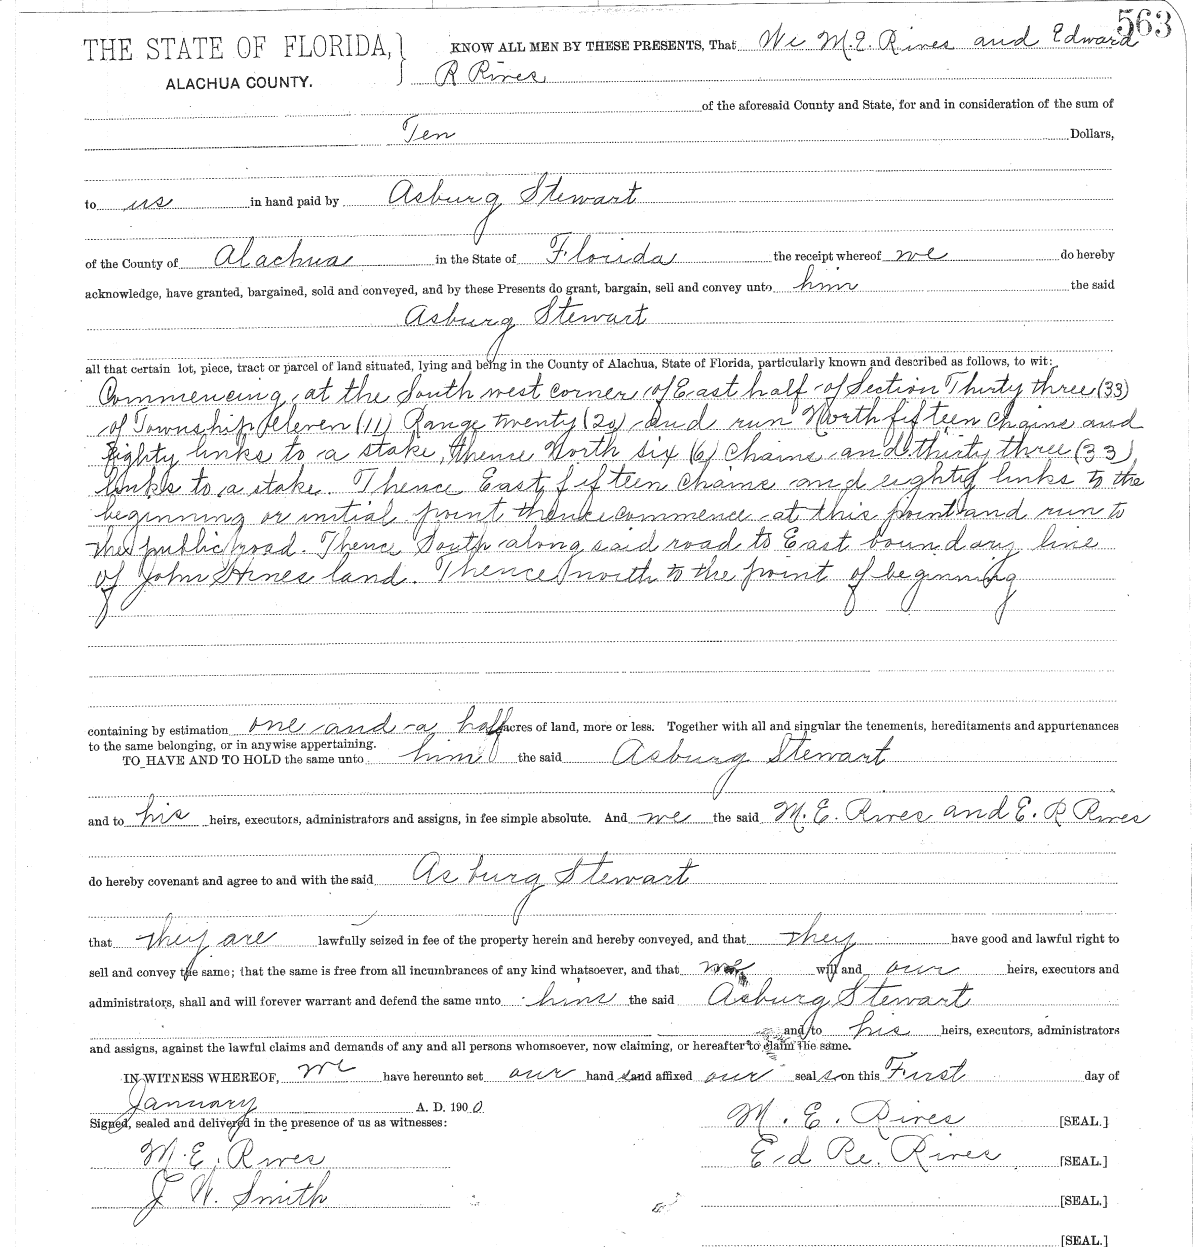 563
THE STATE OF FLORIDA,
ALACHUA COUNTY.
KNOW ALL MEN BY THESE PRESENTS, That We M.E. Rives and Edward
R Rives
of the aforesaid County and State, for and in consideration of the sum of
Ten Dollars,
to us in hand paid by Asburg Stewart
of the County of Alachua in the State of Florida the receipt whereof we do hereby
acknowledge, have granted, bargained, sold and conveyed, and by these Presents do grant, bargain, sell and convey unto him the said
Asburg Stewart
all that certain lot, piece, tract or parcel of land situated, lying and being in the County of Alachua, State of Florida, particularly known and described as follows, to wit:
Commencing at the South west corner of East half of Section Thirty three (33)
of Township Eleven (11) Range twenty (20) and run North fifteen chains and
Eighty links to a stake, thence North six (6) Chains and thirty three (33)
links to a stake. Thence East fifteen chains and eighty links to the
beginning or initial point thence commence at this point and run to
the public road. Thence South along said road to East boundary line
of John Hines land. Thence north to the point of beginning
containing by estimation one and a half acres of land, more or less. Together with all and singular the tenements, hereditaments and appurtenances
to the same belonging, or in anywise appertaining.
TO HAVE AND TO HOLD the same unto him the said Asburg Stewart
and to his heirs, executors, administrators and assigns, in fee simple absolute. And we the said M. E. Rives and E. R Rives
do hereby covenant and agree to and with the said Asburg Stewart
that they are lawfully seized in fee of the property herein and hereby conveyed, and that they have good and lawful right to
sell and convey the same; that the same is free from all incumbrances of any kind whatsoever, and that we will and our heirs, executors and
administrators, shall and will forever warrant and defend the same unto him the said Asburg Stewart
and to his heirs, executors, administrators
and assigns, against the lawful claims and demands of any and all persons whomsoever, now claiming, or hereafter to claim the same.
IN WITNESS WHEREOF, we have hereunto set our hand s and affixed our seal s on this First day of
January A. D. 1900
Signed, sealed and delivered in the presence of us as witnesses:
M. E. Rives [SEAL.]
M. E. Rives
Ed Re. Rives [SEAL.]
J W. Smith
[SEAL.]
[SEAL.]